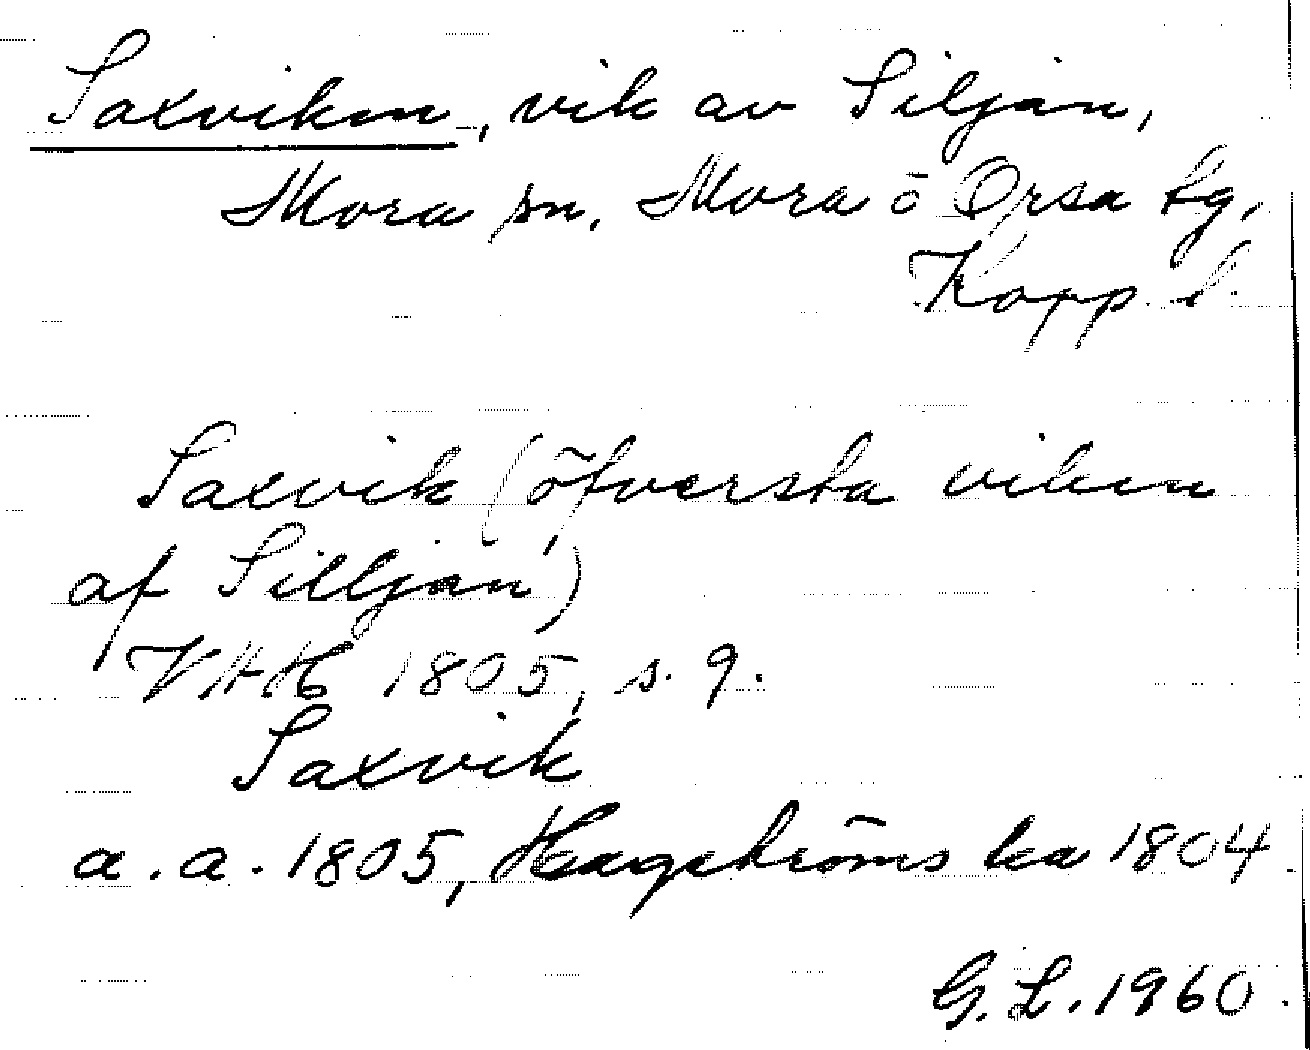 Saxviken, vik av Siljan,
Mora sn. Mora o Orsa tg,
Kopp. l.
Saxvik (öfversta viken
af Silljan)
VHH 1805, s. 9.
Saxvik
a. a. 1805, Hagströms ka 1804.
G. L. 1960.